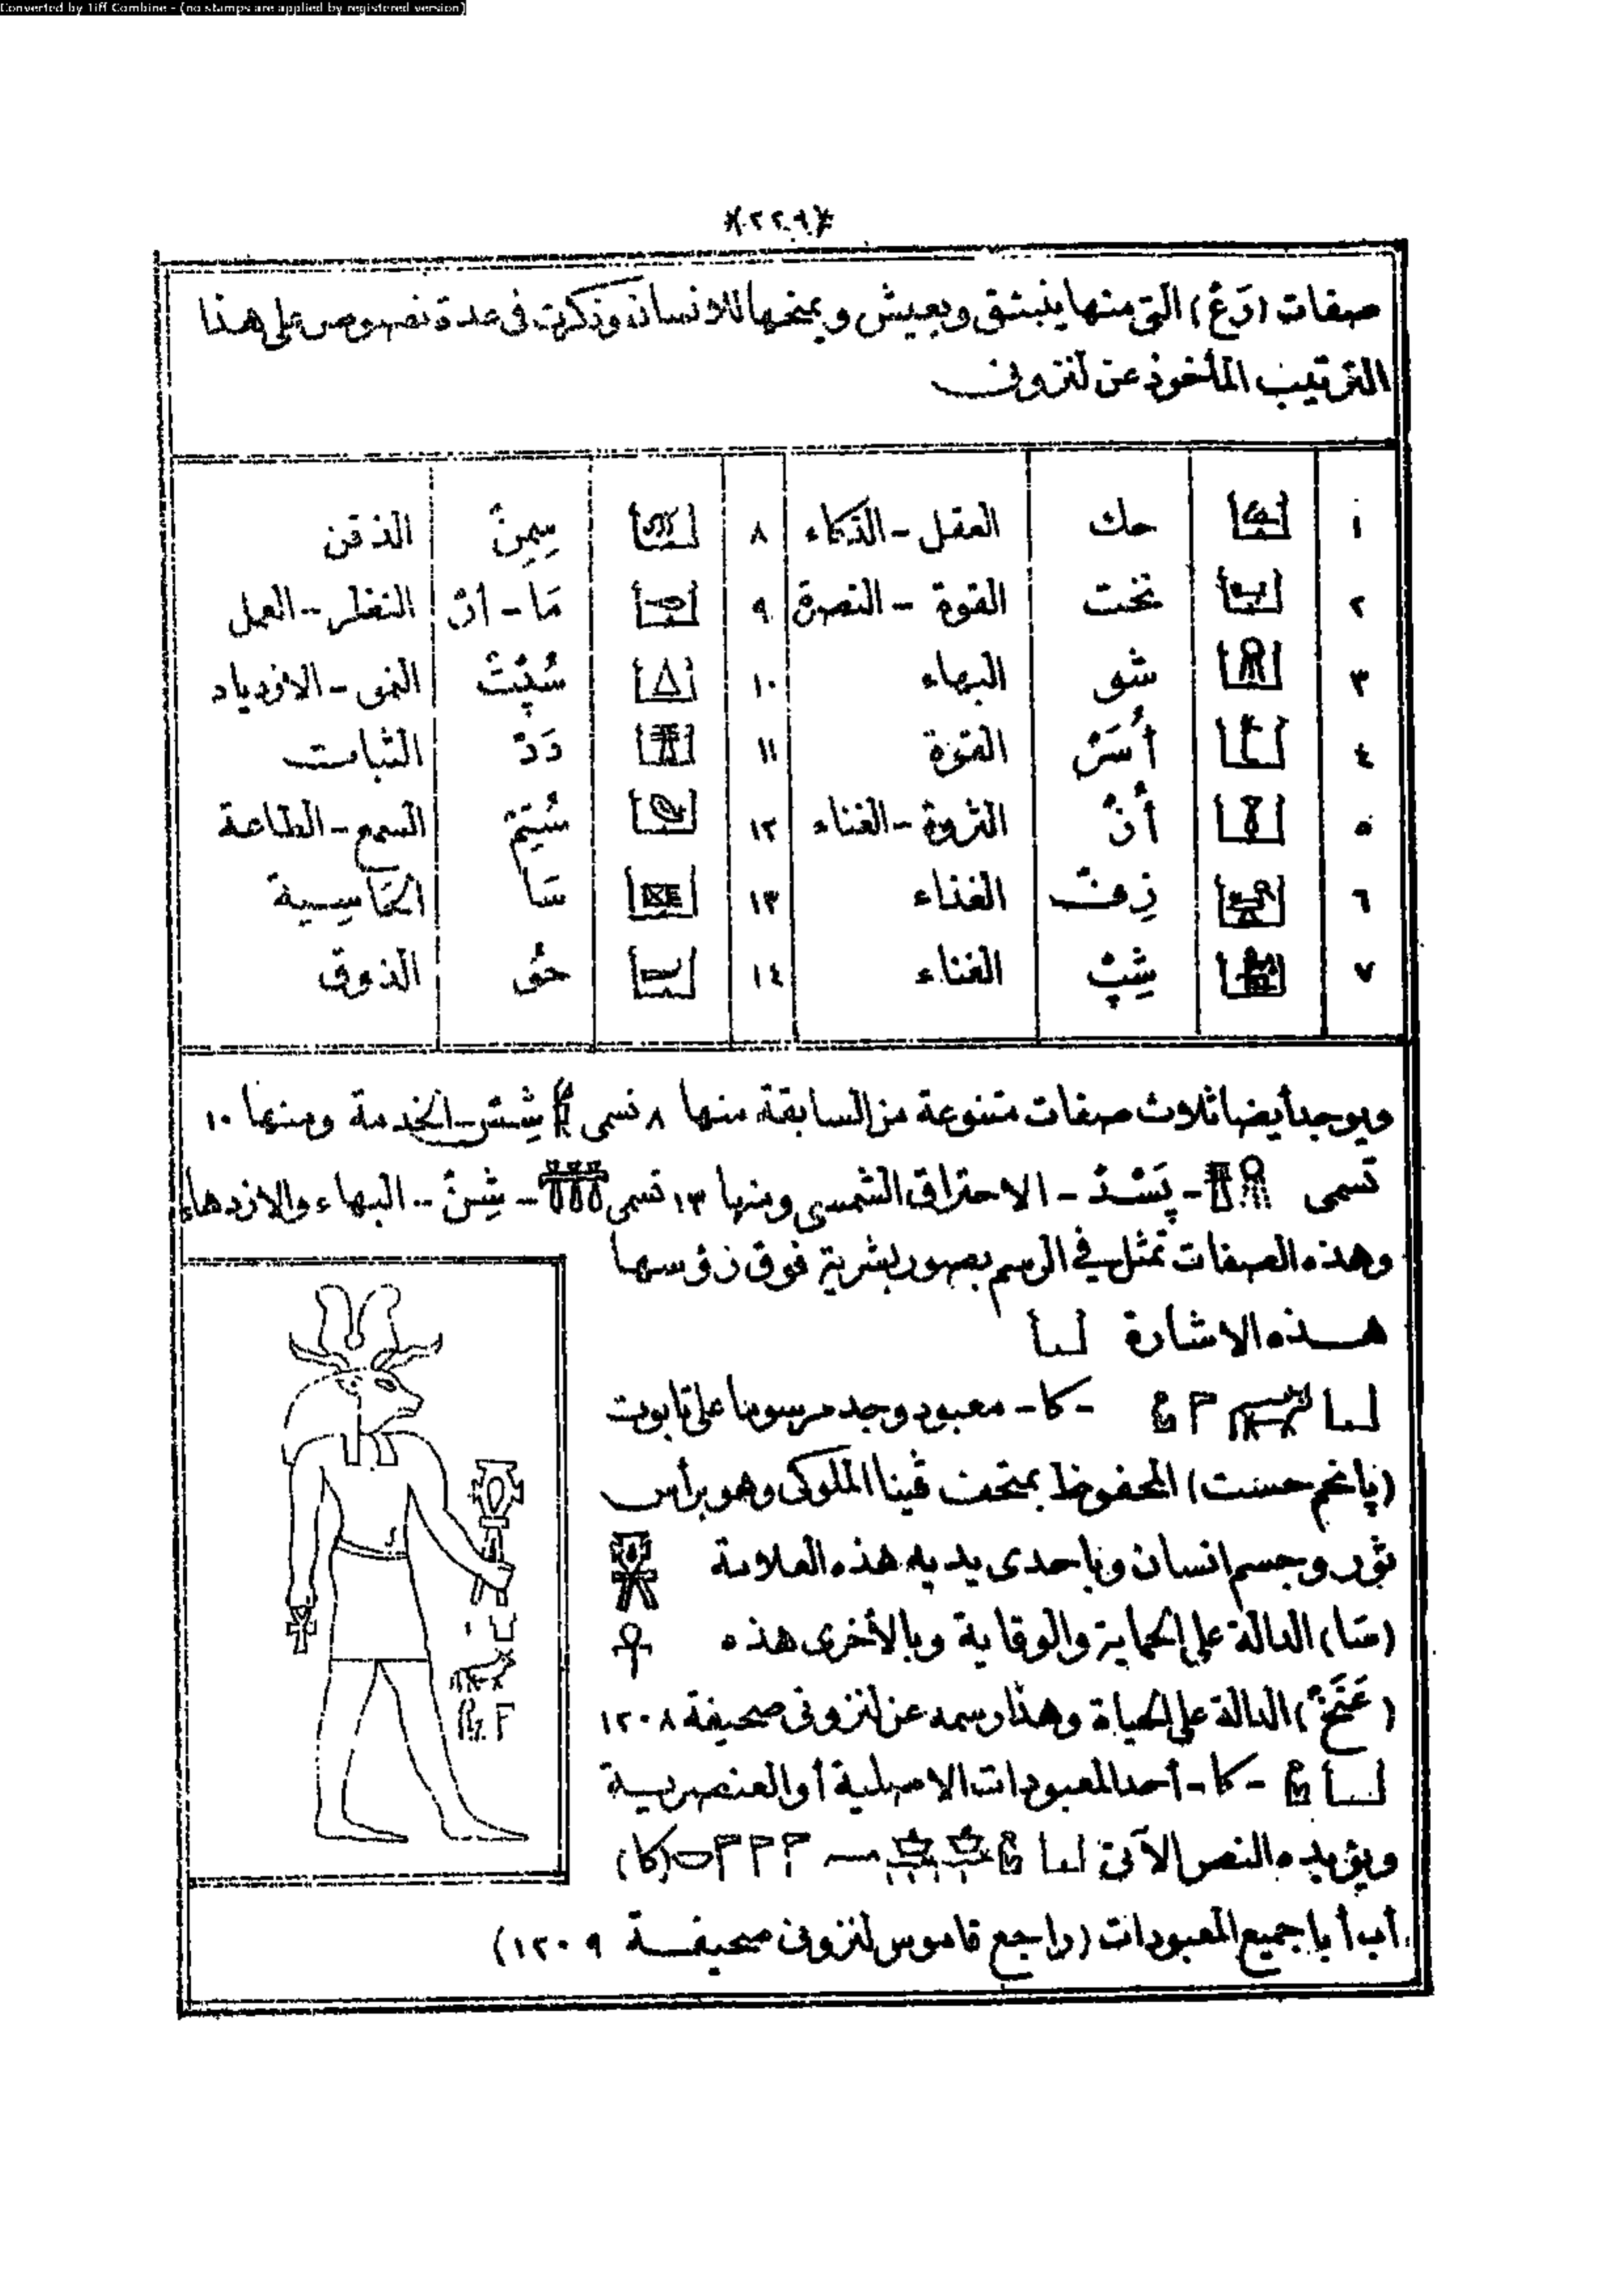 Converted by Tiff Combine - (no stamps are applied by registered version)
*(٢٢٩)*
صفات (رَعْ) التى منها ينبثق ويعيش ويمنحها للانسان وذكرت فى عدة نصوص على هذا
الترتيب المأخوذ عن لنزونى
١ حك العقل - الذكاء ٨ سِمِنْ الذقن
٢ نخت القوة - النصرة ٩ مَا - أنْ النظر - العمل
٣ شو البهاء ١٠ سُپْتْ النمو - الازدياد
٤ أُسَرْ القوة ١١ دَدْ الثبات
٥ أُنْ الثروة - الغناء ١٢ سُتِمْ السمع - الطاعة
٦ زِفْ الغذاء ١٣ سَا الحَاسِية
٧ شِپْ الغناء ١٤ حُو الذوق
ويوجد أيضا ثلاث صفات متنوعة من السابقة منها ٨ تسمى شِسْ - الخدمة ومنها ١٠
تسمى - پَسْدْ - الاحتراق الشمسى ومنها ١٣ تسمى - شِنْ - البهاء والازدهاء
وهذه الصفات تمثل فى الرسم بصور بشرية فوق رؤسها
هذه الاشارة
- كا - معبود وجد مرسوما على تابوت
(پانحم حسنت) المحفوظ بمتحف ڤينا الملوكى وهو برأس
ثور وجسم انسان وباحدى يديه هذه العلامة
(سَا) الدالة على الحماية والوقاية وبالأخرى هذه
(عَنَخْ) الدالة على الحياة وهذا رسمه عن لنزونى صحيفة ١٢٠٨
- كا - أحد المعبودات الاصلية أو العنصرية
ويؤيده النص الآتى (كا)
أب أيا جميع المعبودات (راجع قاموس لنزونى صحيفة ١٢٠٩)